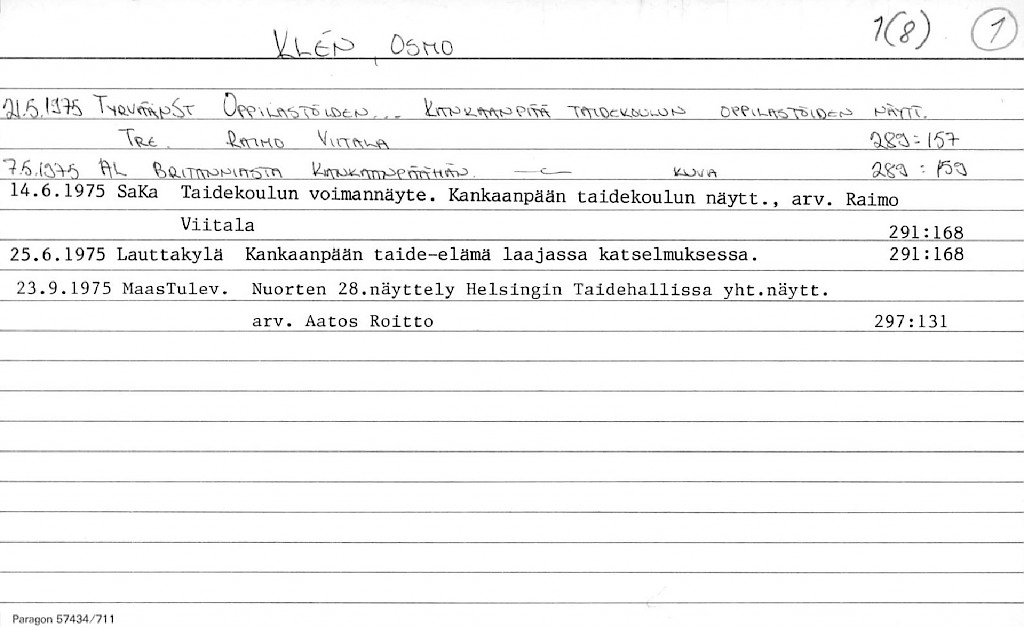 KLÉN, OSMO 1(8) 1
21.5.1975 TYRVÄÄNST OPPILASTÖIDEN... KANKAANPÄÄ TAIDEKOULUN OPPILASTÖIDEN NÄYTT.
TRE. RAIMO VIITALA 289:157
7.5.1975 AL BRITANNIASTA KANKAANPÄÄHÄN. —"— KUVA 289:159
14.6.1975 SaKa Taidekoulun voimannäyte. Kankaanpään taidekoulun näytt., arv. Raimo
Viitala 291:168
25.6.1975 Lauttakylä Kankaanpään taide-elämä laajassa katselmuksessa. 291:168
23.9.1975 MaasTulev. Nuorten 28.näyttely Helsingin Taidehallissa yht.näytt.
arv. Aatos Roitto 297:131
Paragon 57434/711